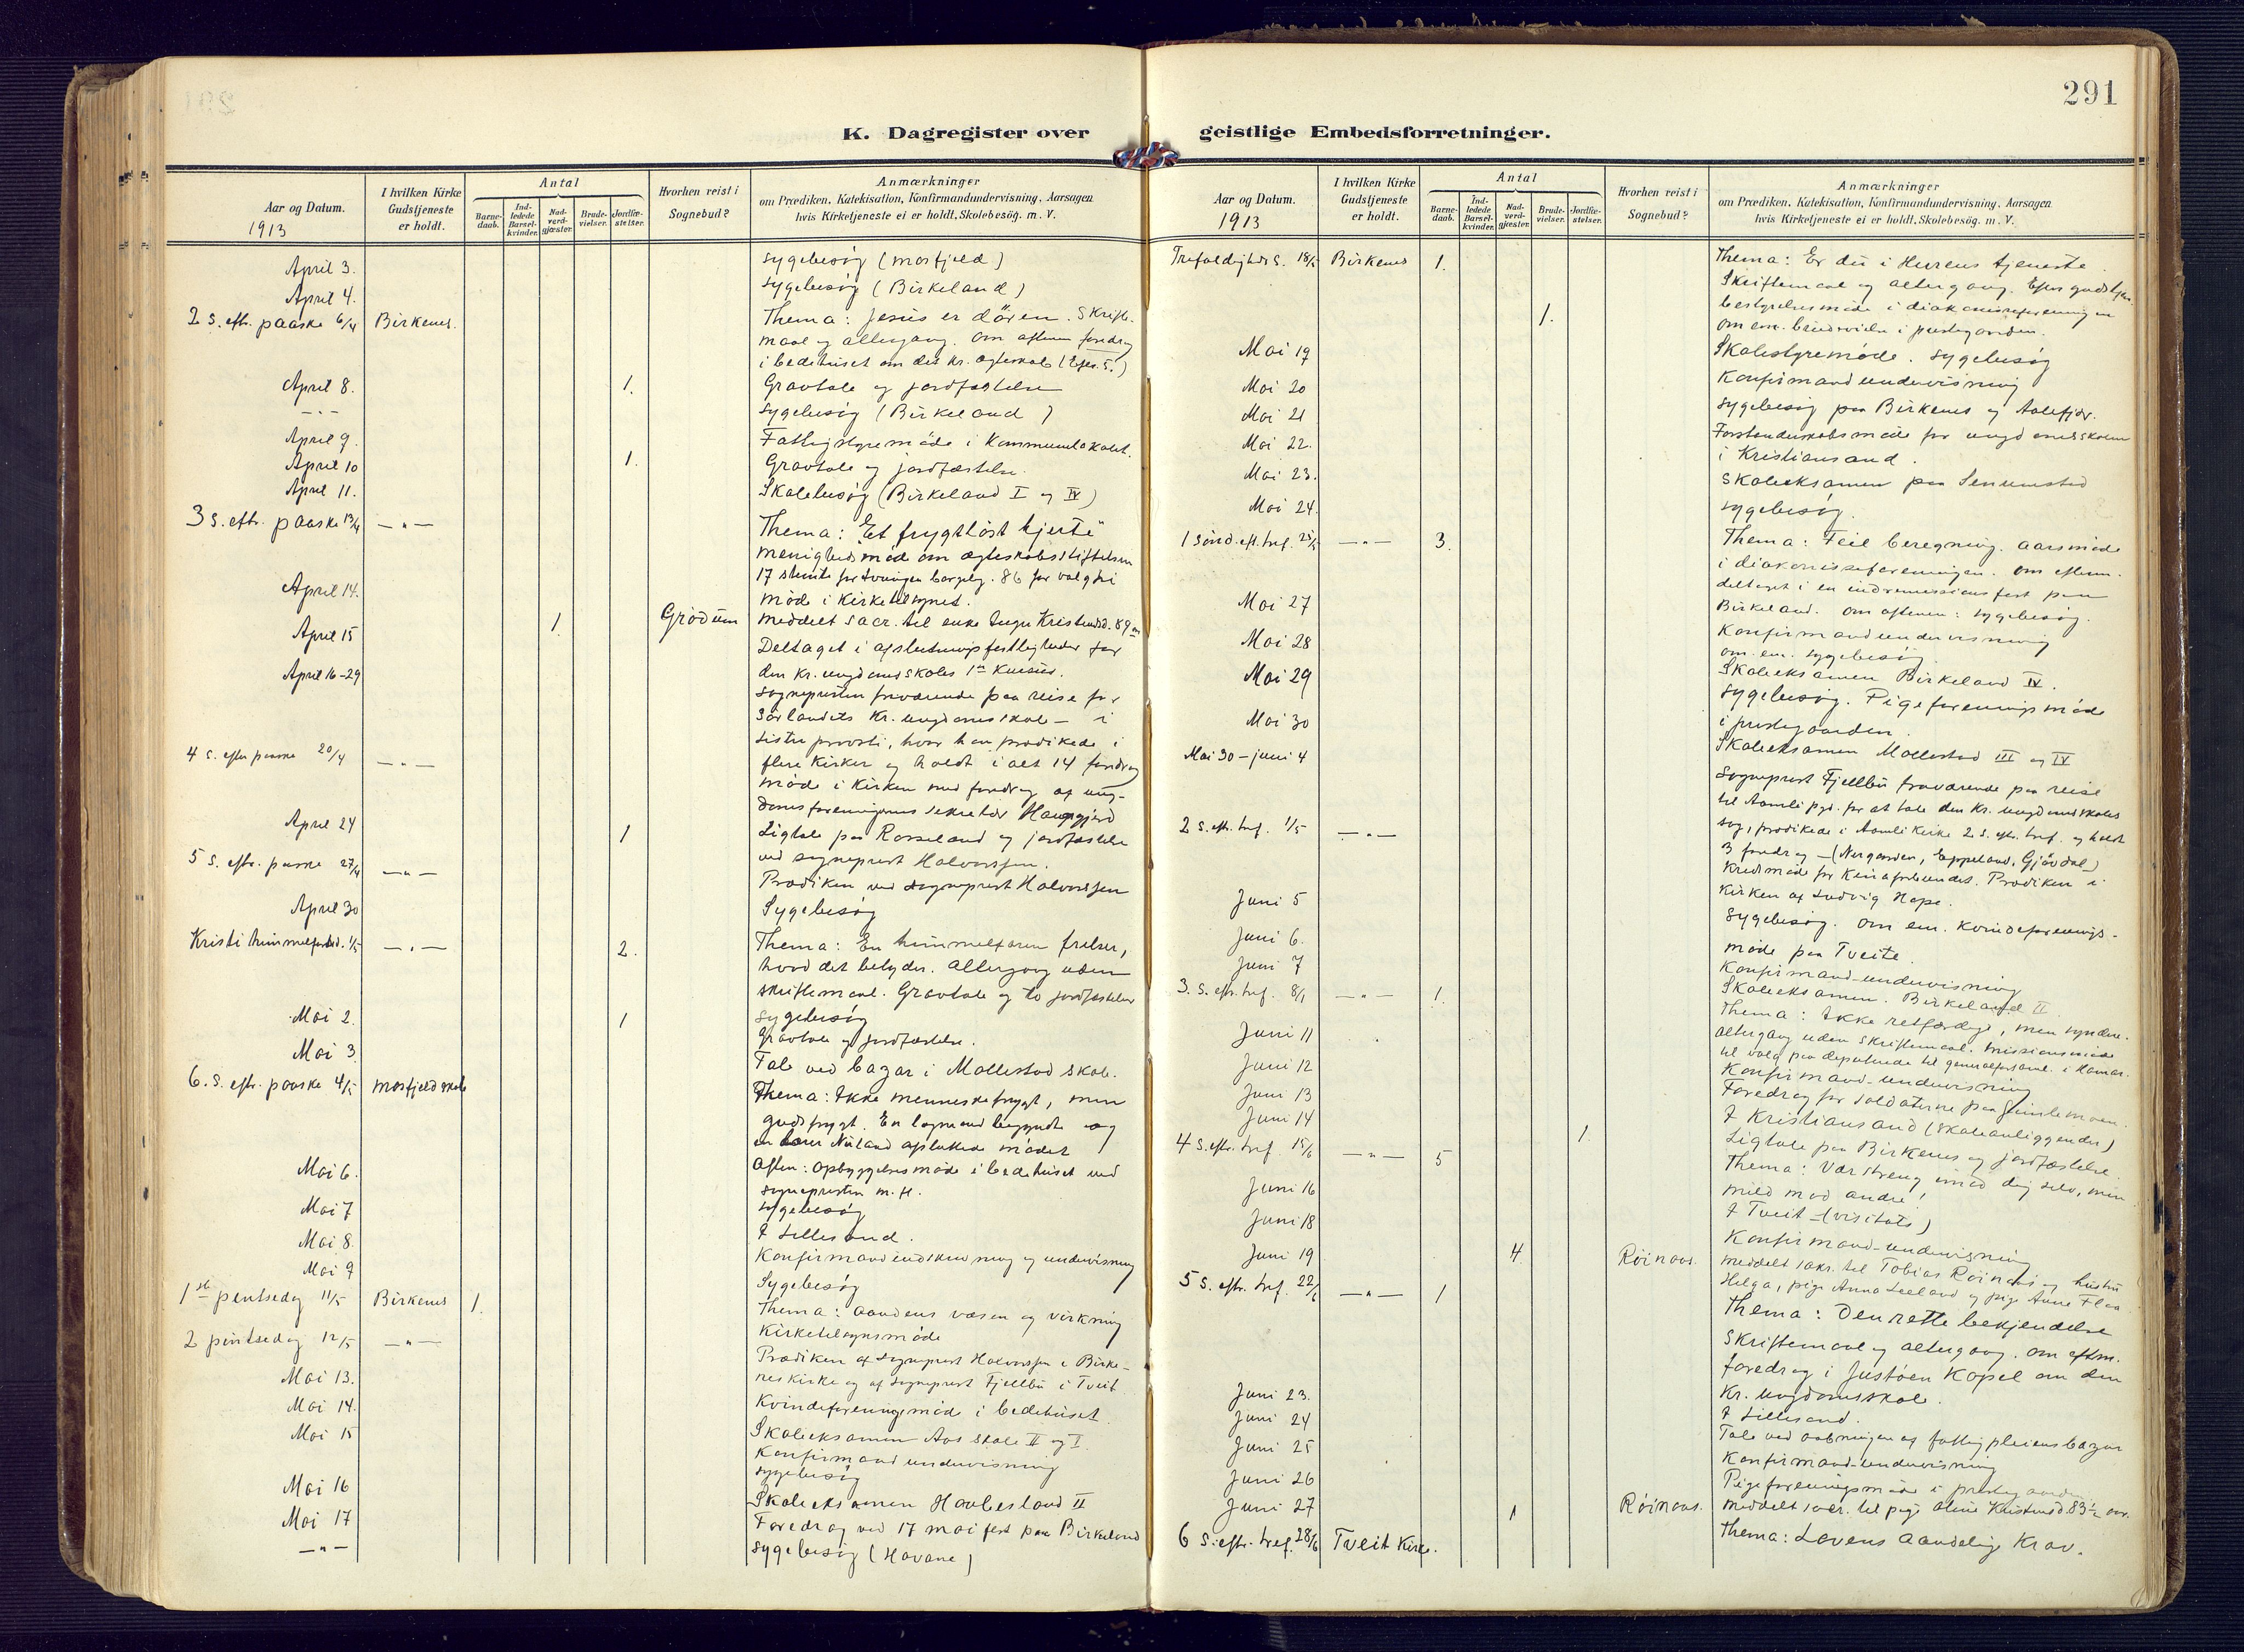 291
K. Dagregister over geistlige Embedsforretninger.
Aar og Datum.
1913
I hvilken Kirke
Gudstjeneste
er holdt.
Antal
Barne-
daab.
Ind-
ledede
Barsel-
kvinder.
Nad-
verd-
gjæster.
Brude-
vielser.
Jordfæ-
stelser.
Hvorhen reist i
Sognebud?
Anmærkninger
om Prædiken, Katekisation, Konfirmandundervisning, Aarsagen
hvis Kirketjeneste ei er holdt. Skolebesøg. m. V.
April 3. Sygebesøg (mosfjeld)
April 4. Sygebesøg (Birkeland)
2 S. eftr. paaske 6/4 Birkenes. Thema: Jesus er døren. Skrifte-
maal og altergang. Om aftenen foredrag
i bedehuset om det kr. ægteskab (Efes. 5.)
April 8. 1. Gravtale og jordfæstelse
- " - Sygebesøg (Birkeland)
April 9. Fattigstyremøde i Kommunelokalet.
April 10 1. Gravtale og jordfæstelse.
April 11. Skolebesøg (Birkeland I og IV)
3 S. eftr. paaske 13/4 - " - Thema: "Et frygtløst hjerte"
menighedsmøde om ægteskabsstiftelsen
17 stemte for tvungen borgelig. 86 for valgfri
April 14. møde i Kirketilsynet.
April 15 1. Grødum meddelt sacr. til enke Inger Kristensd. 89 aar
Deltaget i afslutningsfestligheder for
den kr. ungdomsskoles 1ste Kursus.
April 16-29 Sognepresten fraværende paa reise for
Sørlandets Kr. ungdomsskole - i
Lister provsti, hvor han prædikede i
4 S. efter paaske 20/4 - " - flere Kirker og holdt i alt 14 foredrag
møde i Kirken med foredrag af ung-
domsforeningens sekretær Haugsgjerd
April 24 1 Ligtale paa Rosseland og jordfæstelse
ved sogneprest Halvorssen.
5 S. eftr. paaske 27/4 - " - Prædiken ved sogneprest Halvorssen
April 30 Sygebesøg
Kristi himmelfartsd. 1/5 - " - 2. Thema: En himmelfaren frelser,
hvad det betyder. Altergang uden
skriftemaal. Gravtale og to jordfæstelser
Mai 2. 1 Sygebesøg
Gravtale og jordfæstelse.
Mai 3. Tale ved bazar i Mollestad skole.
6. S. eftr. paaske 4/5 mosfjeld skole Thema: Ikke menneskefrygt, men
gudsfrygt. En lægmand begyndte og
en lærer Nuland afsluttede mødet
Aften: opbyggelsesmøde i bedehuset ved
sognepresten m. fl.
Mai 6. Sygebesøg
Mai 7 I Lillesand.
Mai 8. Konfirmandindskrivning og undervisning
Mai 9 Sygebesøg
1st pentsedag 11/5 Birkenes 1. Thema: Aandens væsen og virkning
Kirketilsynsmøde
2 pintsedag 12/5 - " - Prædiken af sogneprest Halvorssen i Birke-
nes kirke og af sogneprest Fjellbu i Tveit
Mai 13. Kvindeforeningsmøde i bedehuset.
Mai 14. Skoleeksamen Aas skole II og I.
Mai 15 Konfirmandundervisning
Sygebesøg
Mai 16 Skoleeksamen Haabesland II
Mai 17 Foredrag ved 17 mai fest paa Birkeland
- " - Sygebesøg (Havane)
Aar og Datum.
1913
I hvilken Kirke
Gudstjeneste
er holdt.
Antal
Barne-
daab.
Ind-
ledede
Barsel-
kvinder.
Nad-
verd-
gjæster.
Brude-
vielser.
Jordfæ-
stelser.
Hvorhen reist i
Sognebud?
Anmærkninger
om Prædiken, Katekisation, Konfirmandundervisning, Aarsagen
hvis Kirketjeneste ei er holdt. Skolebesøg. m. V.
Trefoldigheds S. 18/5 Birkenes 1. Thema: Er du i Herrens tjeneste.
Skriftemaal og altergang. Efter gudstjen.
1. bestyrelsesmøde i diakonisseforeningen
om em. brudevielse i prestegaarden.
Mai 19 Skolestyremøde. Sygebesøg
Mai 20 Konfirmandundervisning
Mai 21 Sygebesøg paa Birkenes og Aalefjær.
Mai 22. Forstanderskabsmøde for ungdomsskolen
i Kristiansand.
Mai 23. Skoleeksamen paa Senumstad
Mai 24. Sygebesøg.
1 sønd. eft. tref. 25/5 - " - 3. Thema: Feil beregning. Aarsmøde
i diakonisseforeningen. Om efterm.
deltaget i en indremissionsfest paa
Birkeland. Om aftenen: sygebesøg.
Mai 27 Konfirmandundervisning
om em. sygebesøg
Mai 28 Skoleeksamen Birkeland IV.
Mai 29 Sygebesøg. Pigeforeningsmøde
i prestegaarden.
Mai 30 Skoleeksamen Mollestad III og IV
Mai 30 - juni 4 Sogneprest Fjellbu fraværende paa reise
til Aamli pgd. for at tale den kr. ungdomsskoles
sag, prædikede i Aamli Kirke 2 S. eft. tref. og holdt
3 foredrag - (Nergarden, Eppeland, Gjøvdal)
2 S. eft. tref. 1/5 - " - Kredsmøde for Kinaforbundet. Prædiken i
Kirken af Ludvig Hope.
Juni 5 Sygebesøg. Om em. Kvindeforenings-
møde paa Tveite
Juni 6. Konfirmand-undervisning
Juni 7 Skoleeksamen. Birkeland II
3. S. eftr. tref. 8/1 - " - 1. Thema: Ikke retfærdige, men syndere.
Altergang uden skriftemaal. Missionsmøde
til valg paa deputerede til generalforsaml. i Hamar.
Juni 11 Konfirmand-undervisning
Juni 12 Foredrag for soldaterne paa Gimlemoen.
Juni 13 I Kristiansand (skoleanliggender)
Juni 14 1. Ligtale paa Birkenes og jordfæstelse.
4 S. eftr. tref. 15/6 - " - 5 Thema: Vær streng imod dig selv, men
mild mod andre!
Juni 16 I Tveit - (visitats)
Juni 18 Konfirmand-undervisning
Juni 19 4 Røinaas. meddelt sakr. til Tobias Røinaas og hustru
Helga, pige Anna Lieland og pige Anne Flaa
5 S. eftr. tref. 22/6 - " - 1 Thema: Den rette bekjendelse
Skriftemaal og altergang. Om eftm.
foredrag i Justøen Kapel om den
Kr. ungdomsskole.
Juni 23. I Lillesand.
Juni 24 Tale ved aabningen af fattigpleiens bazar
Juni 25 Konfirmand-undervisning
Juni 26 Pigeforeningsmøde i prestegaarden
Juni 27 1 Røinaas. meddelt sacr. til pige Oline Knutsend. 83 1/2 aar.
6 S. eftr. tref. 28/6 Tveit Kirke. Thema: Lovens aandelige Krav.